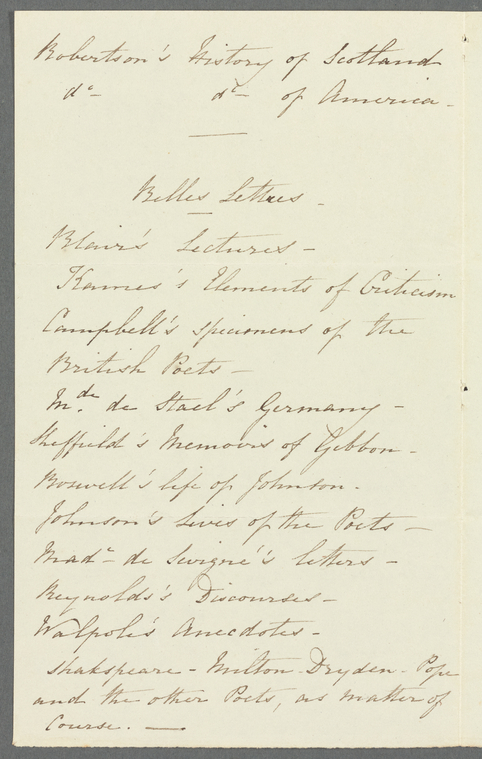 Robertson's History of Scotland
do do of America -
Belles Lettres -
Blair's Lectures -
Kames's Elements of Criticism
Campbell's specimens of the
British Poets -
Mde de Stael's Germany -
Sheffield's Memoirs of Gibbon -
Boswell's life of Johnson -
Johnson's Lives of the Poets -
Made de Sevigné's letters -
Reynolds's Discourses -
Walpole's Anecdotes -
Shakspeare - Milton - Dryden - Pope
and the other Poets, as matter of
Course. —